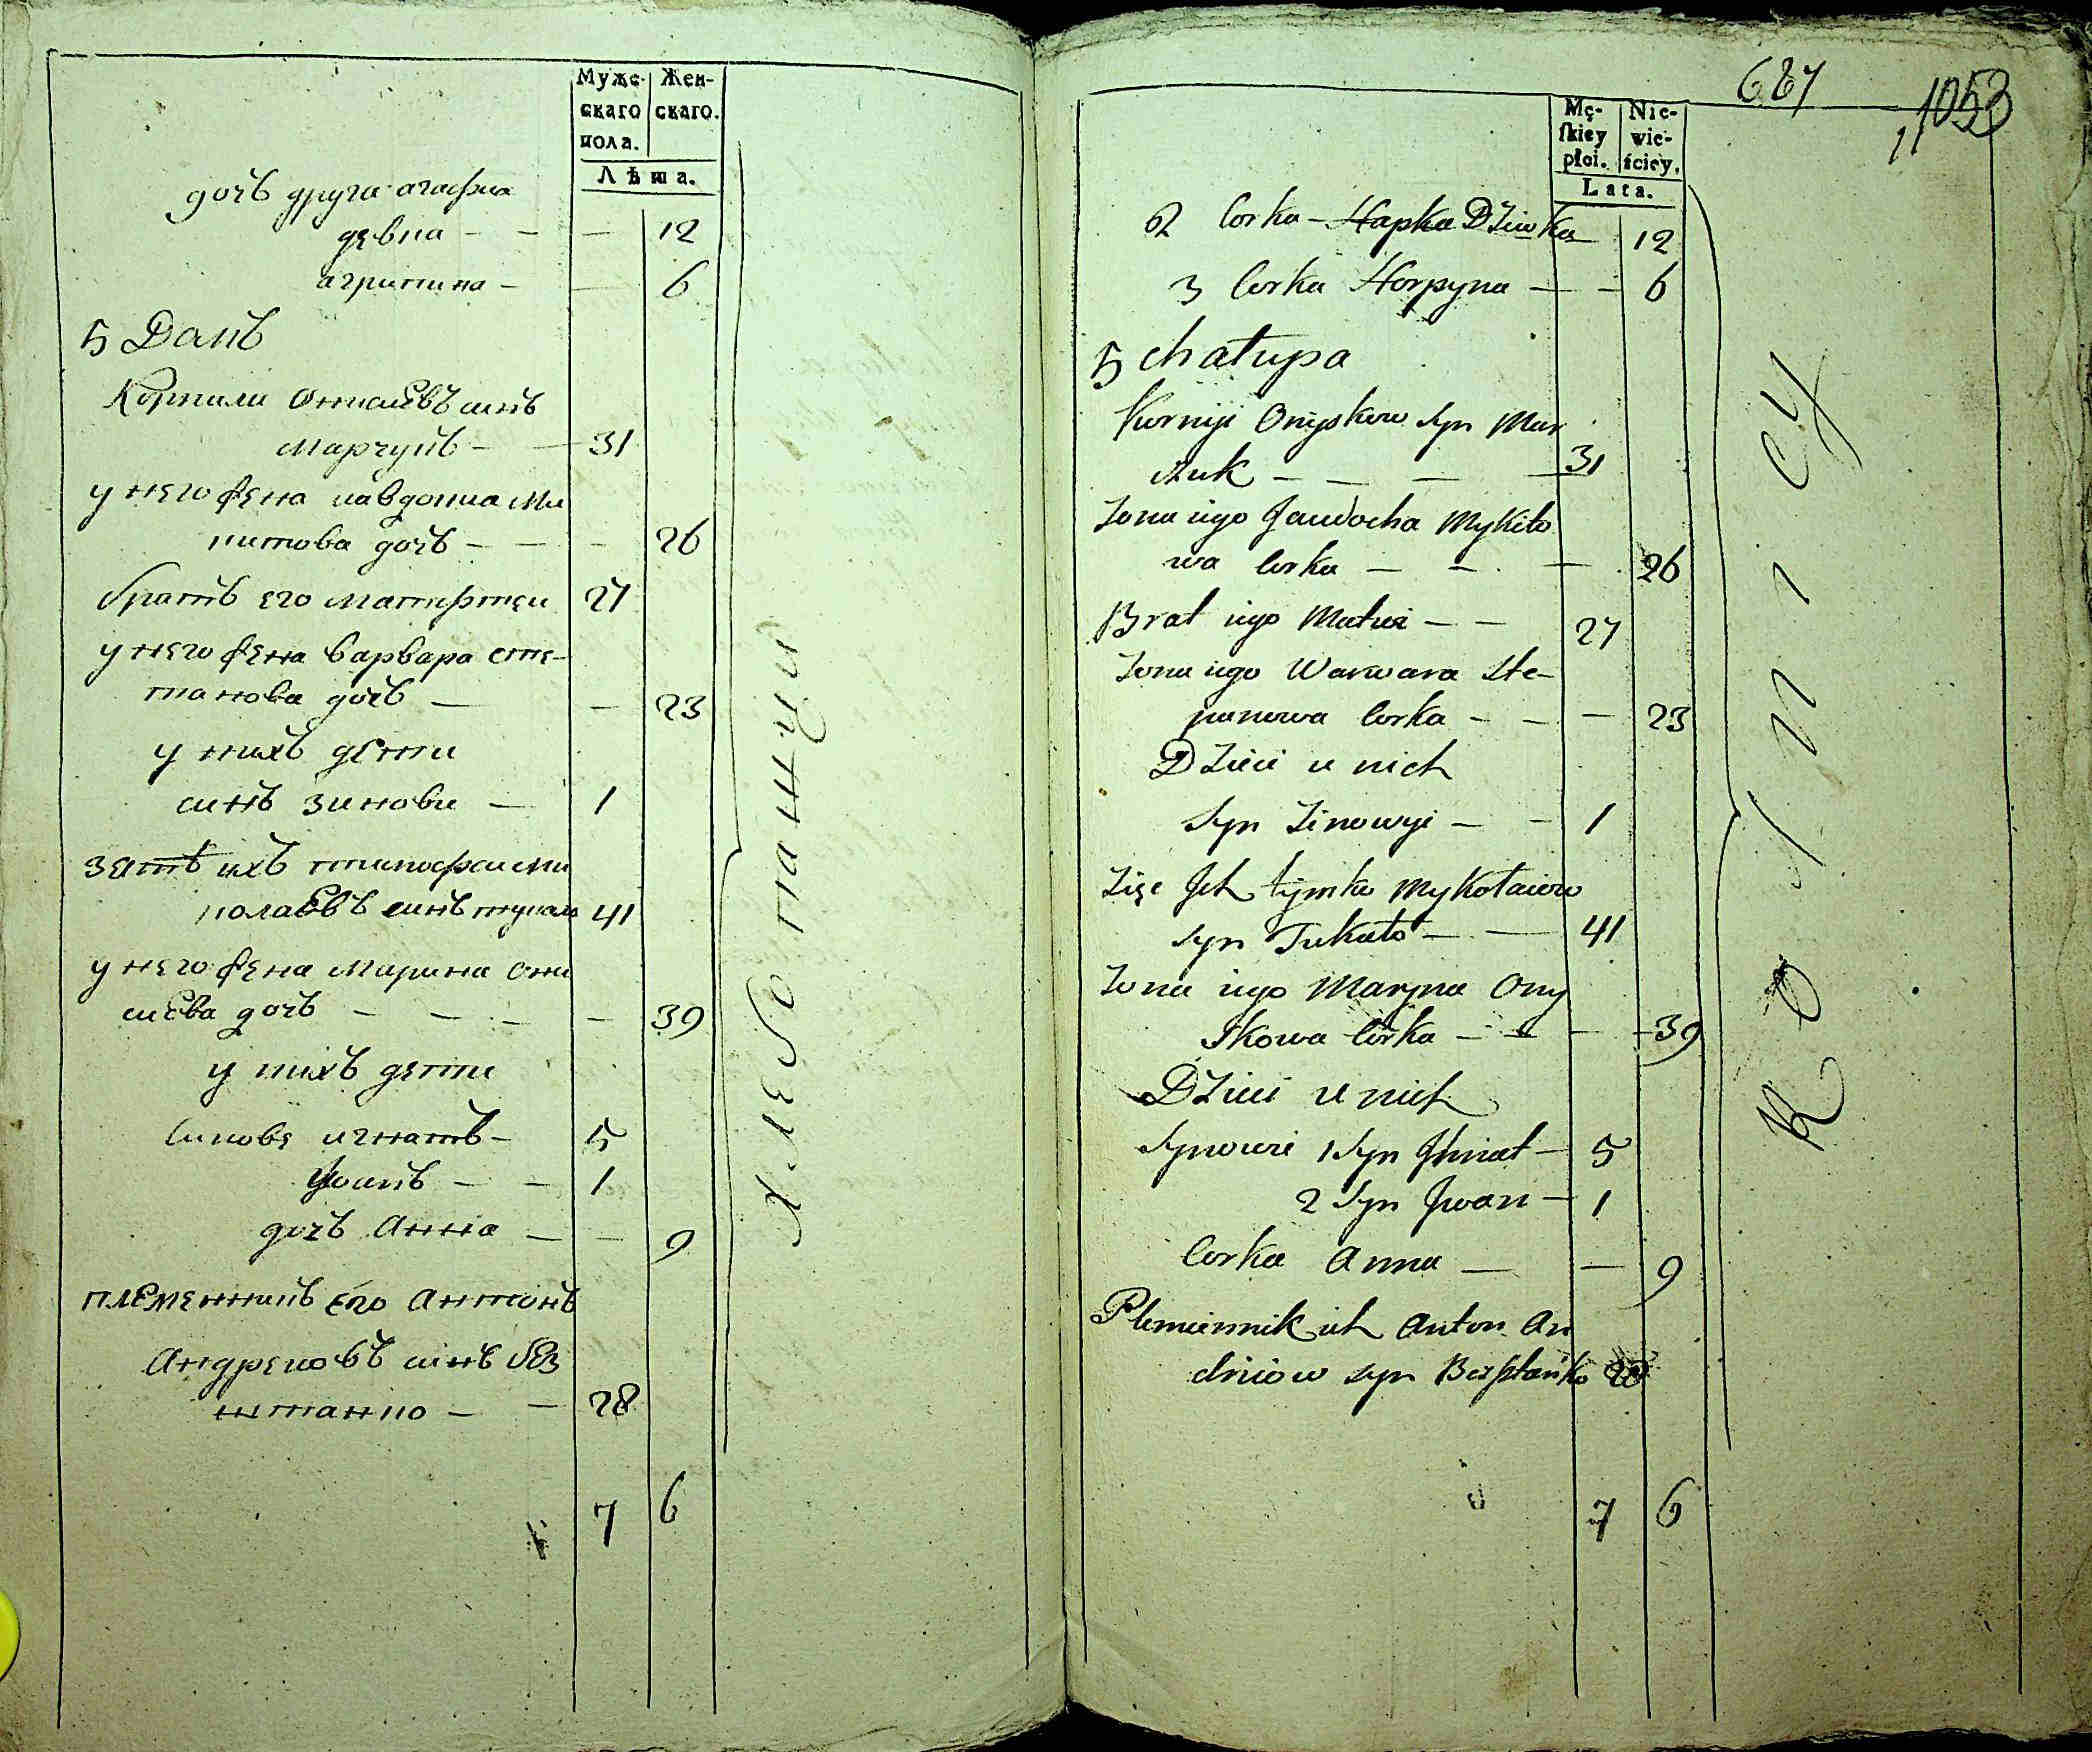 Муже-
скаго
пола.
Жен-
скаго.
Лѣта.
дочь друга агафиа
девка - - — 12
агрипина - — 6
5 Домъ
Корнили Онисиевъ синъ
Марчукъ - — 31
у него жена иавдокиа Ми
китова дочь - — - 26
братъ его Матфтеи 27
у него жена варвара сте-
панова дочь — — 23
у нихъ дети
синъ зинови — 1
зять ихъ тимофеи Ми
колаевъ синъ тукало 41
у него жена Марина Они
сиева дочь — — — — 39
у нихъ дети
синове игнатъ - 5
Иванъ - — 1
дочь Анна — — 9
племенникъ его Антонъ
Андреиовъ синъ без
штанко — — 28
7 6
Хлебопашци
687
1053
Mę-
skiey
płci.
Nie-
wie-
ściey.
Lata.
2 Corka - Hapka Dziwka — 12
3 Corka Horpyna — - 6
5 Chałupa
Kornji Onyskow Syn Mar
czuk - — — — 31
Zona iego Jawdocha Mykito
wa Corka — - — 26
Brat iego Matwi — — 27
Zona iego Warwara Ste-
panowa Corka - - — 23
Dzieci u nich
Syn Zinowyi — - 1
Zięc Ich tymko Mykołaiow
Syn Tukało — — 41
Zona iego Maryna Ony
skowa Corka — — — 39
Dzieci u nich
Synowie 1 Syn Ihnat — 5
2 Syn Iwan — 1
Corka Anna — — 9
Plemiennik ich Anton An
driow Syn Bezsztanko 28
7 6
Rolnicy